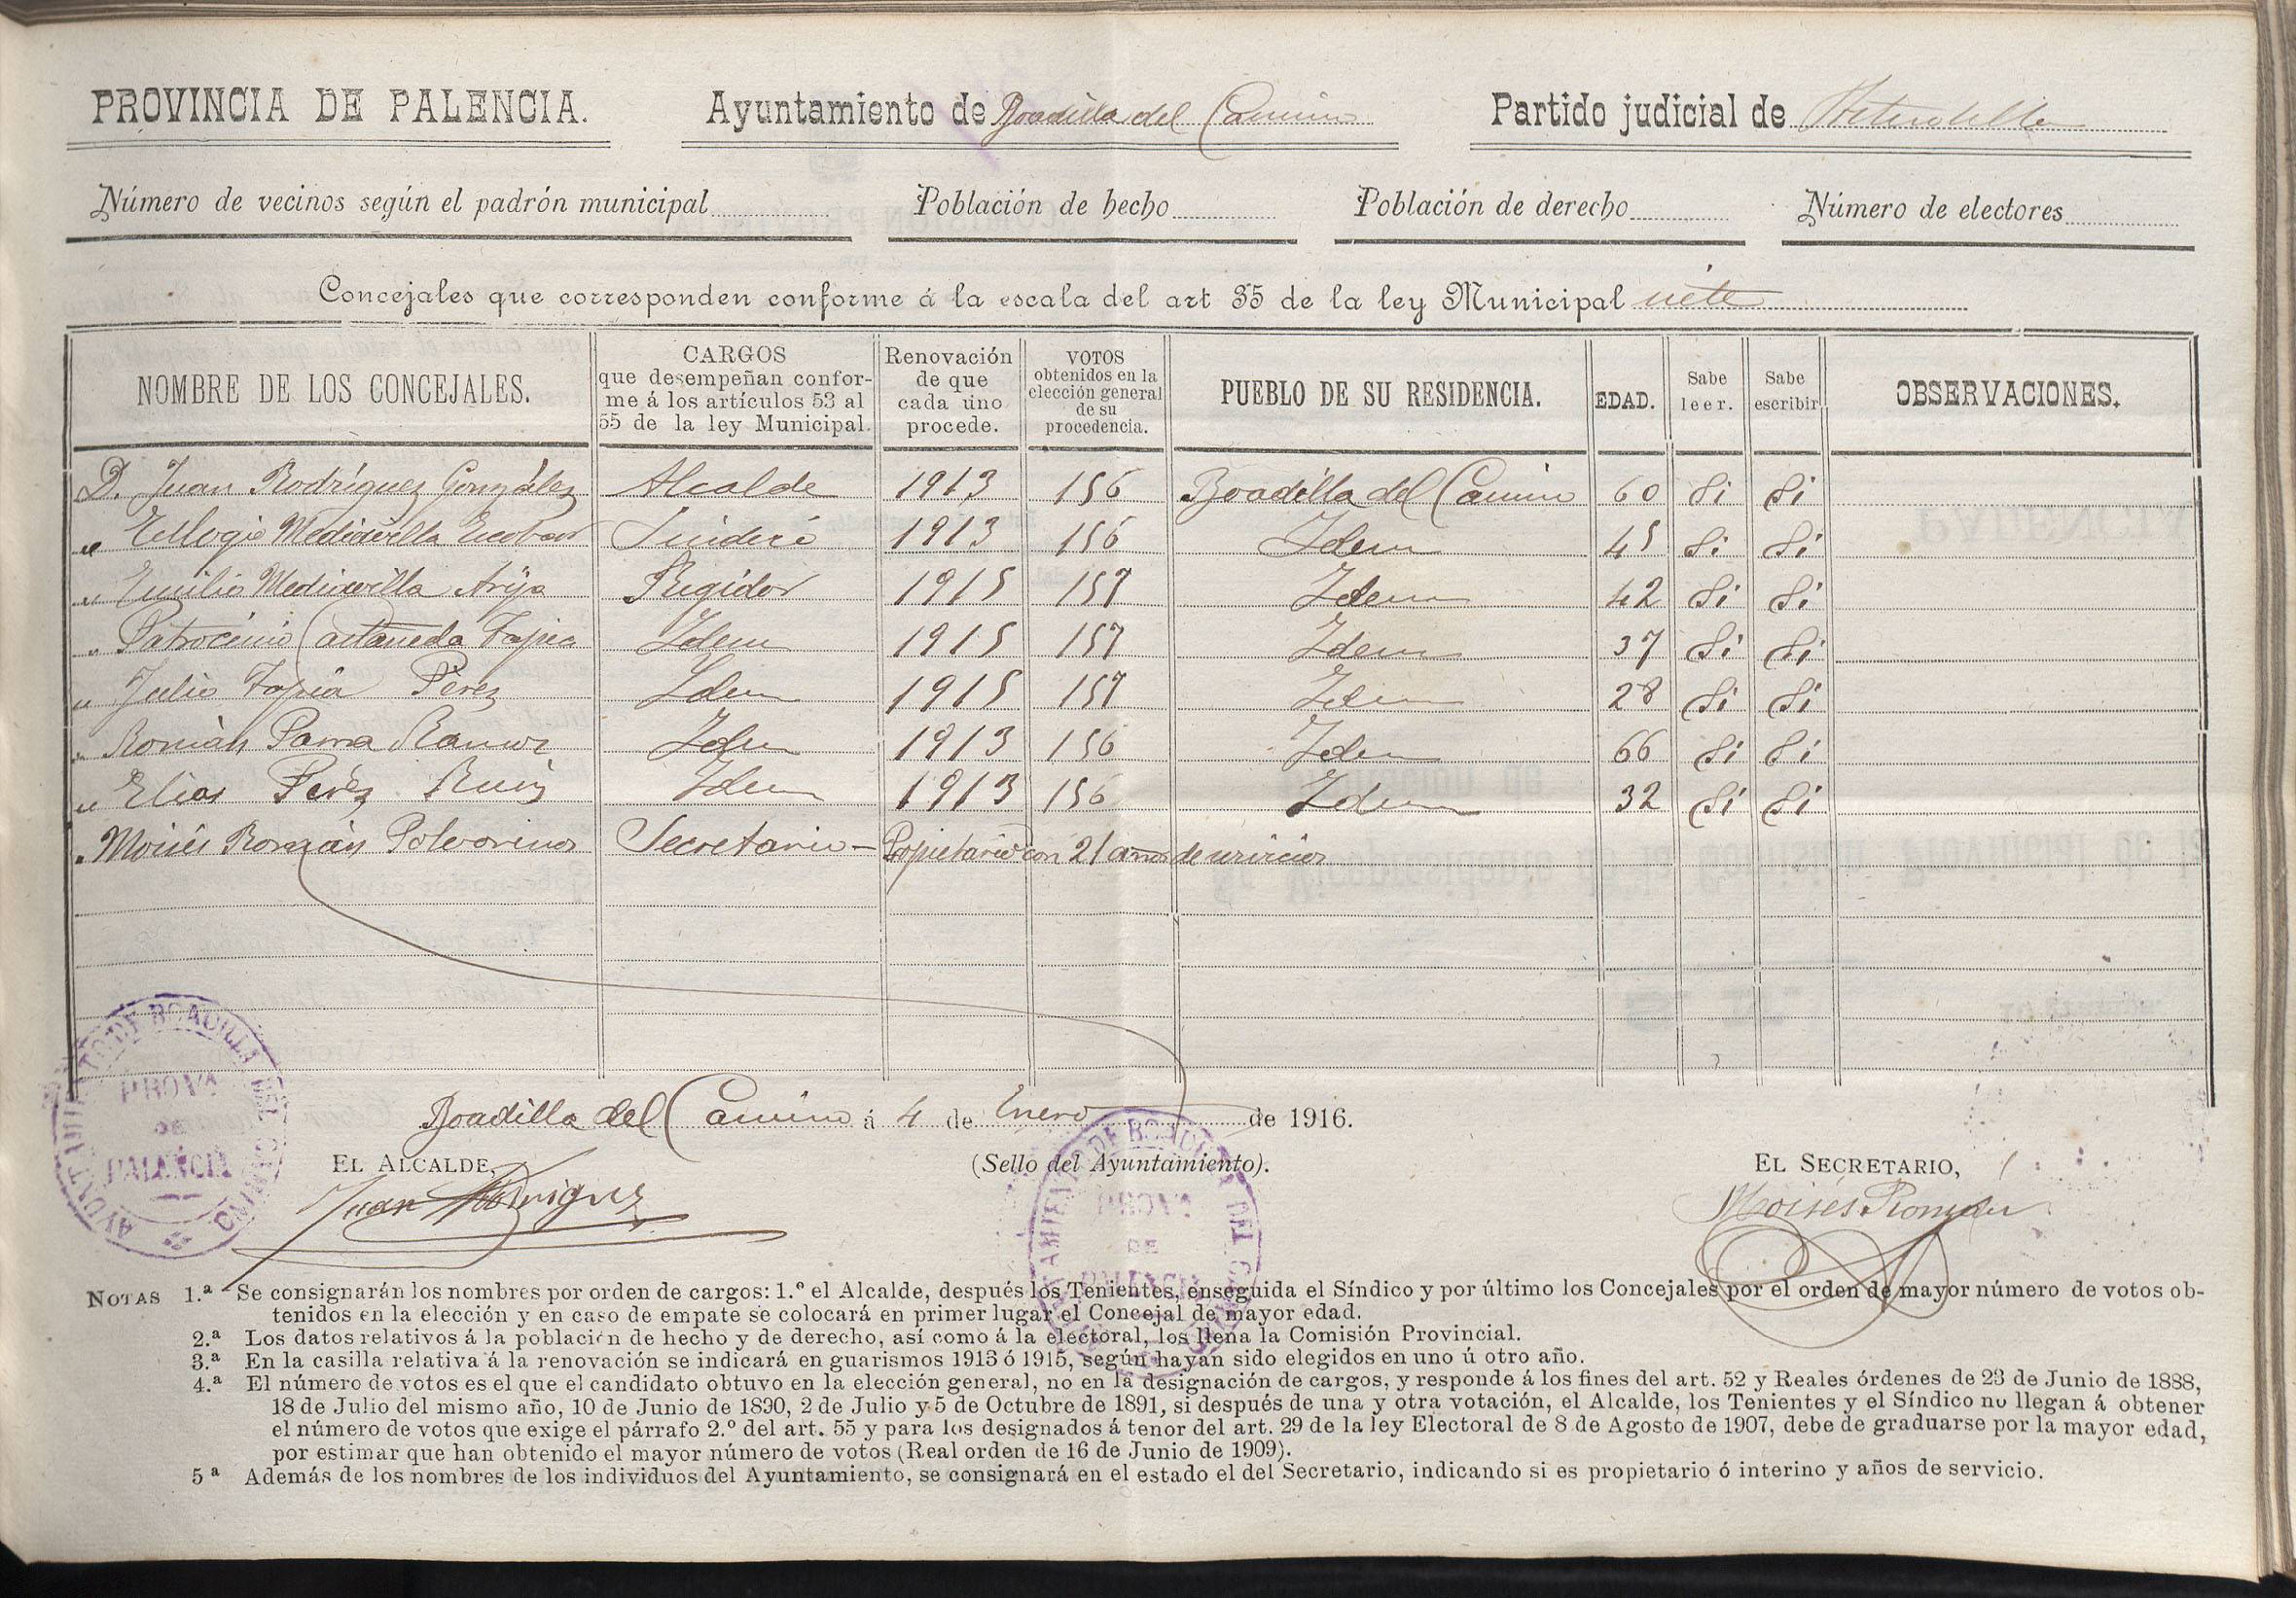 PROVINCIA DE PALENCIA. Ayuntamiento de Boadilla del Camino Partido judicial de
Número de vecinos según el padrón municipal Población de hecho Población de derecho Número de electores
Concejales que corresponden conforme á la escala del art 35 de la ley Municipal siete
NOMBRE DE LOS CONCEJALES.
CARGOS
que desempeñan confor-
me á los artículos 53 al
55 de la ley Municipal.
Renovación
de que
cada uno
procede.
VOTOS
obtenidos en la
elección general
de su
procedencia.
PUEBLO DE SU RESIDENCIA.
EDAD.
Sabe
leer.
Sabe
escribir
OBSERVACIONES.
D. Juan Rodríguez González Alcalde 1913 156 Boadilla del Camino 60 Si Si
" Eulogio Mediavilla Escobar Sindico 1913 156 Idem 45 Si Si
" Emilio Mediavilla Arija Regidor 1915 157 Idem 42 Si Si
" Patrocinio Castañeda Tapia Idem 1915 157 Idem 37 Si Si
" Julio Tapia Pérez Idem 1915 157 Idem 28 Si Si
" Román Parra Ramos Idem 1913 156 Idem 66 Si Si
" Elías Peréz Ruiz Idem 1913 156 Idem 32 Si Si
" Moisés Román Polvorinos Secretario - Propietario con 21 años de servicios
Boadilla del Camino á 4 de Enero de 1916.
EL ALCALDE,
(Sello del Ayuntamiento).
EL SECRETARIO,
Juan Rodriguez
Moisés Román
AYUNTAMIENTO DE BOADILLA DEL CAMINO
PROVA
DE
PALENCIA
AYUNTAMIENTO DE BOADILLA DEL CAMINO
PROVA
DE
PALENCIA
NOTAS 1.ª Se consignarán los nombres por orden de cargos: 1.º el Alcalde, después los Tenientes, enseguida el Síndico y por último los Concejales por el orden de mayor número de votos ob-
tenidos en la elección y en caso de empate se colocará en primer lugar el Concejal de mayor edad.
2.ª Los datos relativos á la población de hecho y de derecho, así como á la electoral, los llena la Comisión Provincial.
3.ª En la casilla relativa á la renovación se indicará en guarismos 1913 ó 1915, según hayan sido elegidos en uno ú otro año.
4.ª El número de votos es el que el candidato obtuvo en la elección general, no en la designación de cargos, y responde á los fines del art. 52 y Reales órdenes de 23 de Junio de 1888,
18 de Julio del mismo año, 10 de Junio de 1890, 2 de Julio y 5 de Octubre de 1891, si después de una y otra votación, el Alcalde, los Tenientes y el Síndico no llegan á obtener
el número de votos que exige el párrafo 2.º del art. 55 y para los designados á tenor del art. 29 de la ley Electoral de 8 de Agosto de 1907, debe de graduarse por la mayor edad,
por estimar que han obtenido el mayor número de votos (Real orden de 16 de Junio de 1909).
5ª Además de los nombres de los individuos del Ayuntamiento, se consignará en el estado el del Secretario, indicando si es propietario ó interino y años de servicio.